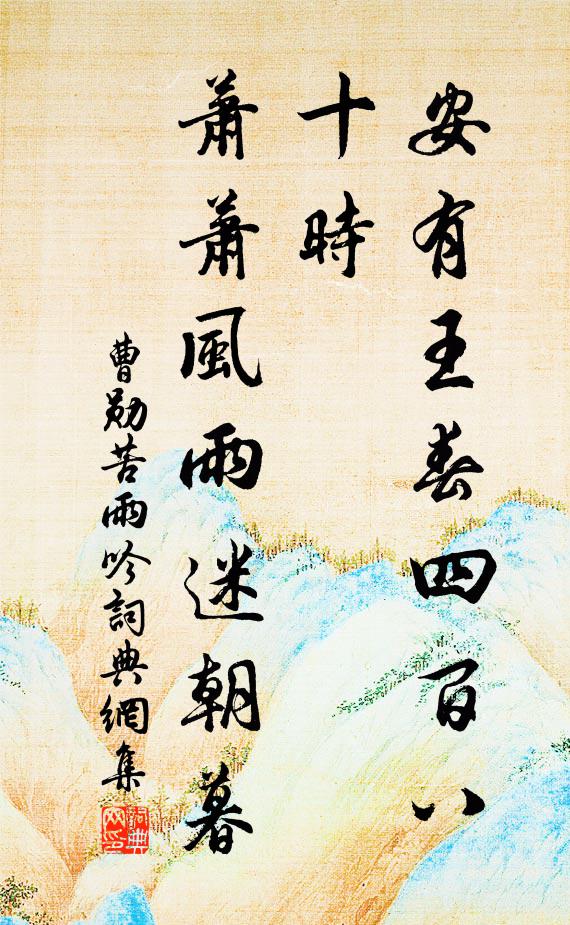 安有王春四百八
十時
蕭蕭風雨迷朝暮
曹勛苦雨吟詞典網集
詞典網印